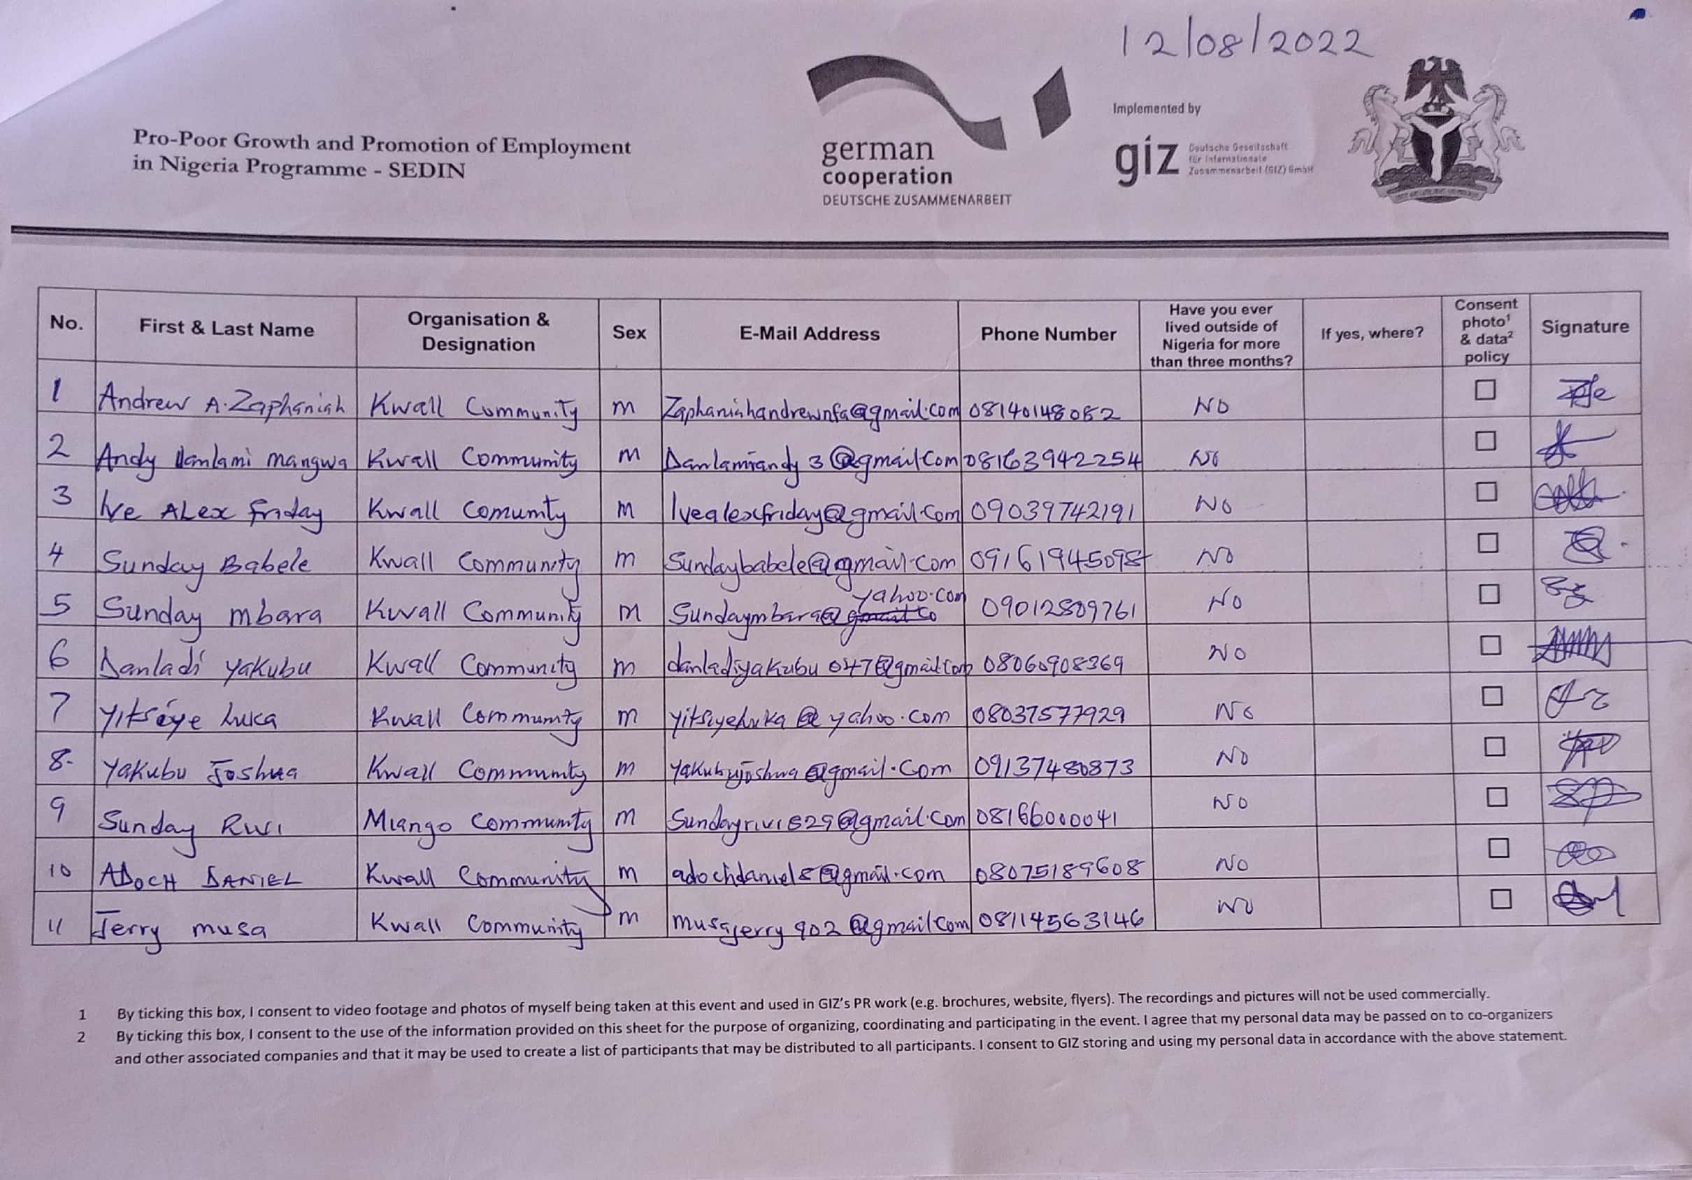 12/08/2022
Pro-Poor Growth and Promotion of Employment
in Nigeria Programme - SEDIN
german
cooperation
DEUTSCHE ZUSAMMENARBEIT
Implemented by
giz Deutsche Gesellschaft
für Internationale
Zusammenarbeit (GIZ) GmbH
No. First & Last Name Organisation & Designation Sex E-Mail Address Phone Number Have you ever lived outside of Nigeria for more than three months? If yes, where? Consent photo¹ & data² policy Signature
1 Andrew A. Zaphaniah Kwall Community m Zaphaniahandrewnfa@gmail.com 08140148082 NO
2 Andy Danlami mangwa Kwall Community m Danlamiandy3@gmail.com 08163942254 No
3 Ive ALex friday Kwall Comunity m Ivealexfriday@gmail.com 09039742191 NO
4 Sunday Babele Kwall Community m Sundaybabele@gmail.com 09161945098 NO
5 Sunday mbara Kwall Community m Sundaymbara@yahoo.com 09012809761 No
6 Danladi yakubu Kwall Community m danladiyakubu047@gmail.com 08060908369 NO
7 Yitsiye Luka Kwall Community m yitsiyeluka@yahoo.com 08037577929 No
8. Yakubu Joshua Kwall Community m Yakubujoshua@gmail.com 09137480873 NO
9 Sunday Riwi Miango Community m 08166000041 NO
10 ADOCH DANIEL Kwall Community m adochdaniel8@gmail.com 08075189608 NO
11 Jerry musa Kwall Community m musajerry902@gmail.com 08114563146 NO
1 By ticking this box, I consent to video footage and photos of myself being taken at this event and used in GIZ's PR work (e.g. brochures, website, flyers). The recordings and pictures will not be used commercially.
2 By ticking this box, I consent to the use of the information provided on this sheet for the purpose of organizing, coordinating and participating in the event. I agree that my personal data may be passed on to co-organizers
and other associated companies and that it may be used to create a list of participants that may be distributed to all participants. I consent to GIZ storing and using my personal data in accordance with the above statement.